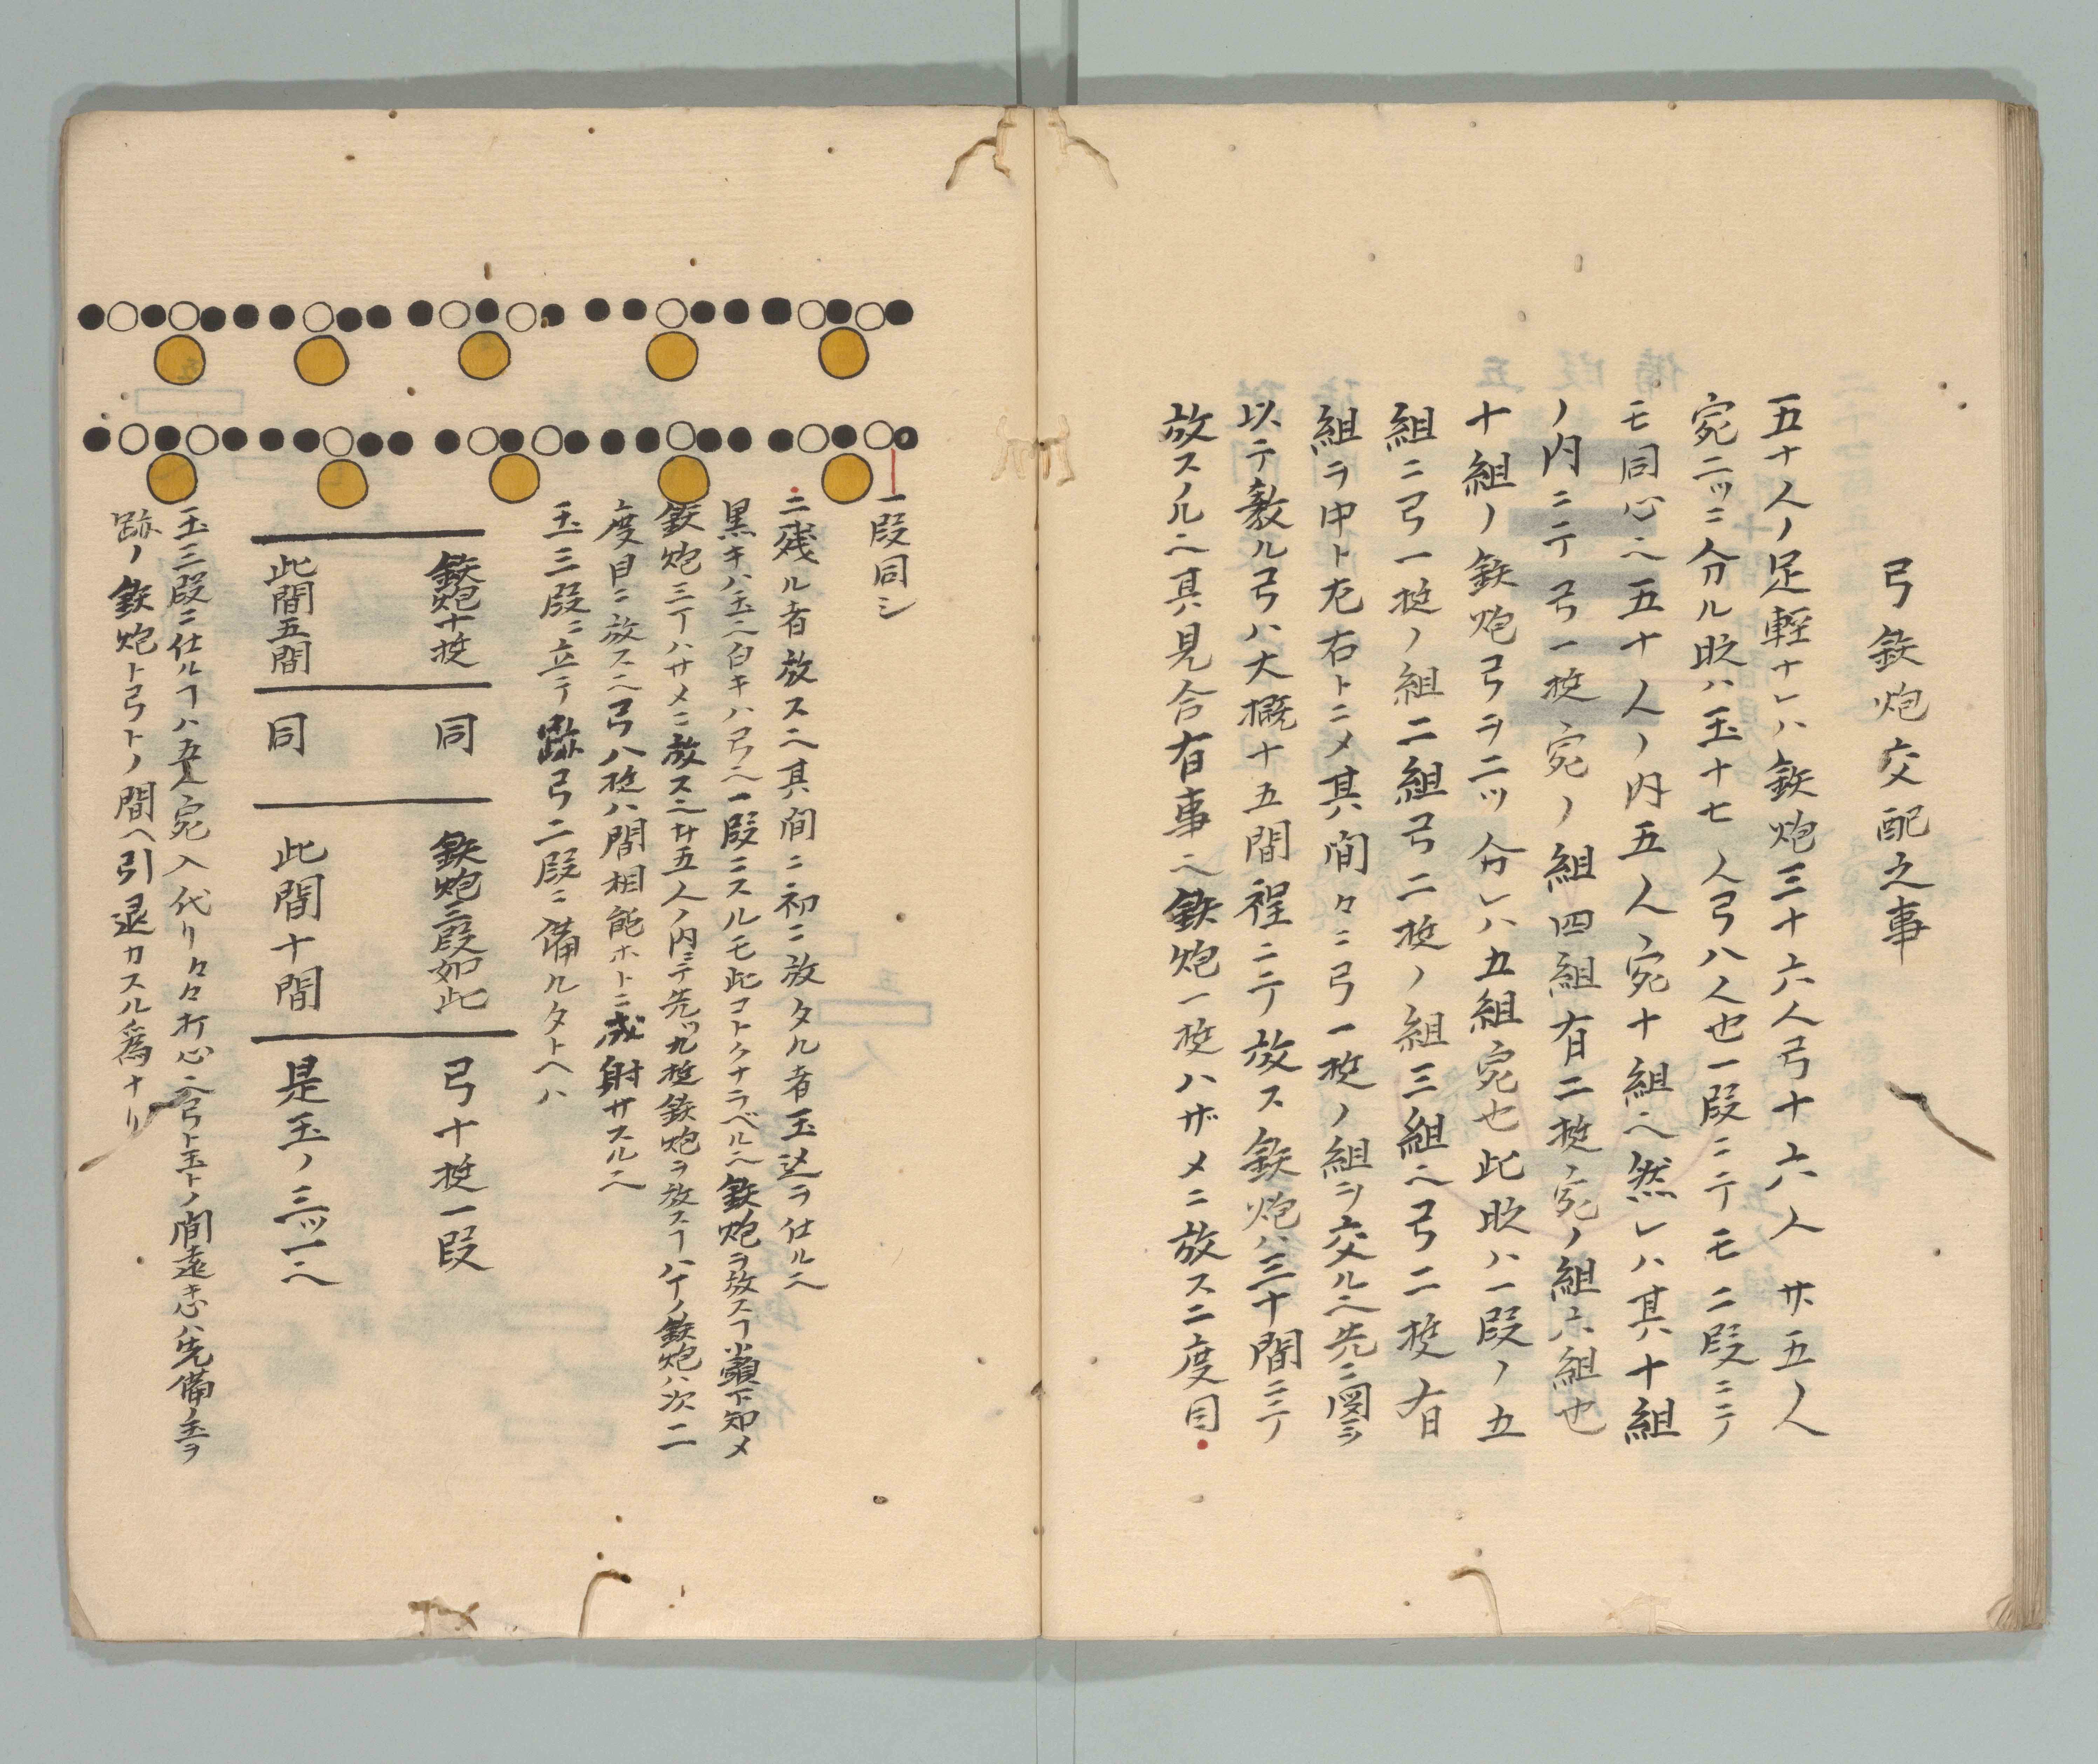 弓鉄炮交配之事
五十人ノ足軽ナレハ鉄炮三十六人弓十六人廿五人
宛二ツニ分ル時ハ玉十七人弓八人也一段ニテモ二段ニテ
モ同心ヘ五十人ノ内五人宛十組ヘ然レハ其十組
ノ内ニテ弓一挺宛ノ組四組有二挺宛ノ組六組也
十組ノ鉄炮弓ヲ二ツ分レハ五組宛也此時ハ一段ノ五
組ニ弓一挺ノ組二組弓二挺ノ組三組ヘ弓二挺有
組ヲ中ト左右トニメ其間々ニ弓一挺ノ組ヲ交ルヘ先ニ図ヲ
以テ教ル弓ハ大概十五間程ニテ放ス鉄炮ハ三十間ニテ
放スルヘ其見合有事ヘ鉄炮一挺ハザメニ放ス二度目
一段同シ
ニ残ル者放スヘ其間ニ初ニ放タル者玉込ヲ仕ルヘ
黒キハ玉ヘ白キハ弓ヘ一段ニスルモ此コトクナラベルヘ鉄炮ヲ放スフ小頭下知メ
鉄炮三丁ハサメニ放スヘ廿五人ノ内ニテ先ツ九挺鉄炮ヲ放スフハイノ鉄炮ハ次ニ
度目ニ放スヘ弓八挺ハ間相能ホトニ成射サスルヘ
玉三段ニ立テ跡弓二段ニ備ルタトヘハ
鉄炮十挺 同 鉄炮三段如此 弓十挺一段
此間五間 同 此間十間 是玉ノ三ツ一ヘ
玉三段ニ仕ルフハ五人宛入代リ々々打心ヘ弓ト玉トノ間遠キ心ハ先備ノ玉ヲ
跡ノ鉄炮ト弓トノ間ヘ引退カスル為ナリ